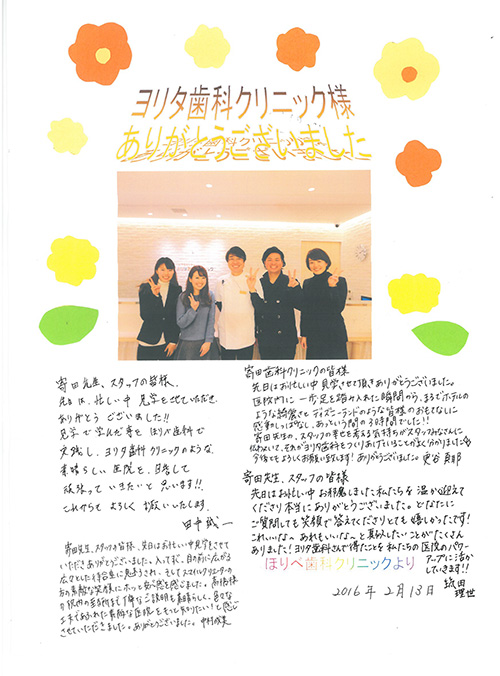 ヨリタ歯科クリニック様
ありがとうございました
寄田先生、スタッフの皆様、
先日は、忙しい中 見学をさせていただき、
ありがとう ございました!!
見学で学んだ事を ほりべ歯科で
実践し、ヨリタ歯科クリニックのような
素晴らしい医院を、目指して
頑張って いきたいと 思います!!
これからも よろしく お願いいたします。
田中 誠一
寄田先生、スタッフの皆様、先日はお忙しい中見学をさせて
いただきありがとうございました。入ってすぐ、目の前に広がる
広々とした待合室に
そしてスマイルクリエーターの
方の素敵な笑顔にホッと安心感を感じました。
丁寧なご説明も素晴らしく、色々な
工夫であふれた素敵な医院をもっと知りたい!と感じ
させていただきました。ありがとうございました。中村
寄田歯科クリニックの皆様
先日はお忙しい中見学させて頂きありがとうございました。
医院内に一歩足を踏み入れた瞬間から、まるでホテルの
ような綺麗さとディズニーランドのような皆様のおもてなしに
感動しっぱなし、あっという間の3時間でした!!
寄田先生の、スタッフの幸せを考える気持ちがスタッフみなさんに
伝わっていて、それがヨリタ歯科をつくりあげていることが良く分かりました
今後ともよろしくお願いします! ありがとうございました。
寄田先生、スタッフの皆様
先日はお忙しい中お邪魔しました私たちを 温かく迎えて
くださり本当にありがとうございました。どなたに
ご質問しても笑顔で答えてくださりとても嬉しかったです!
これいいな〜 あれもいいな〜と真似したいことがたくさん
ありました!ヨリタ歯科さんで得たことを私たちの医院のパワー
アップに活かし
ていきます!!
ほりべ歯科クリニックより
2016年 2月13日
理世